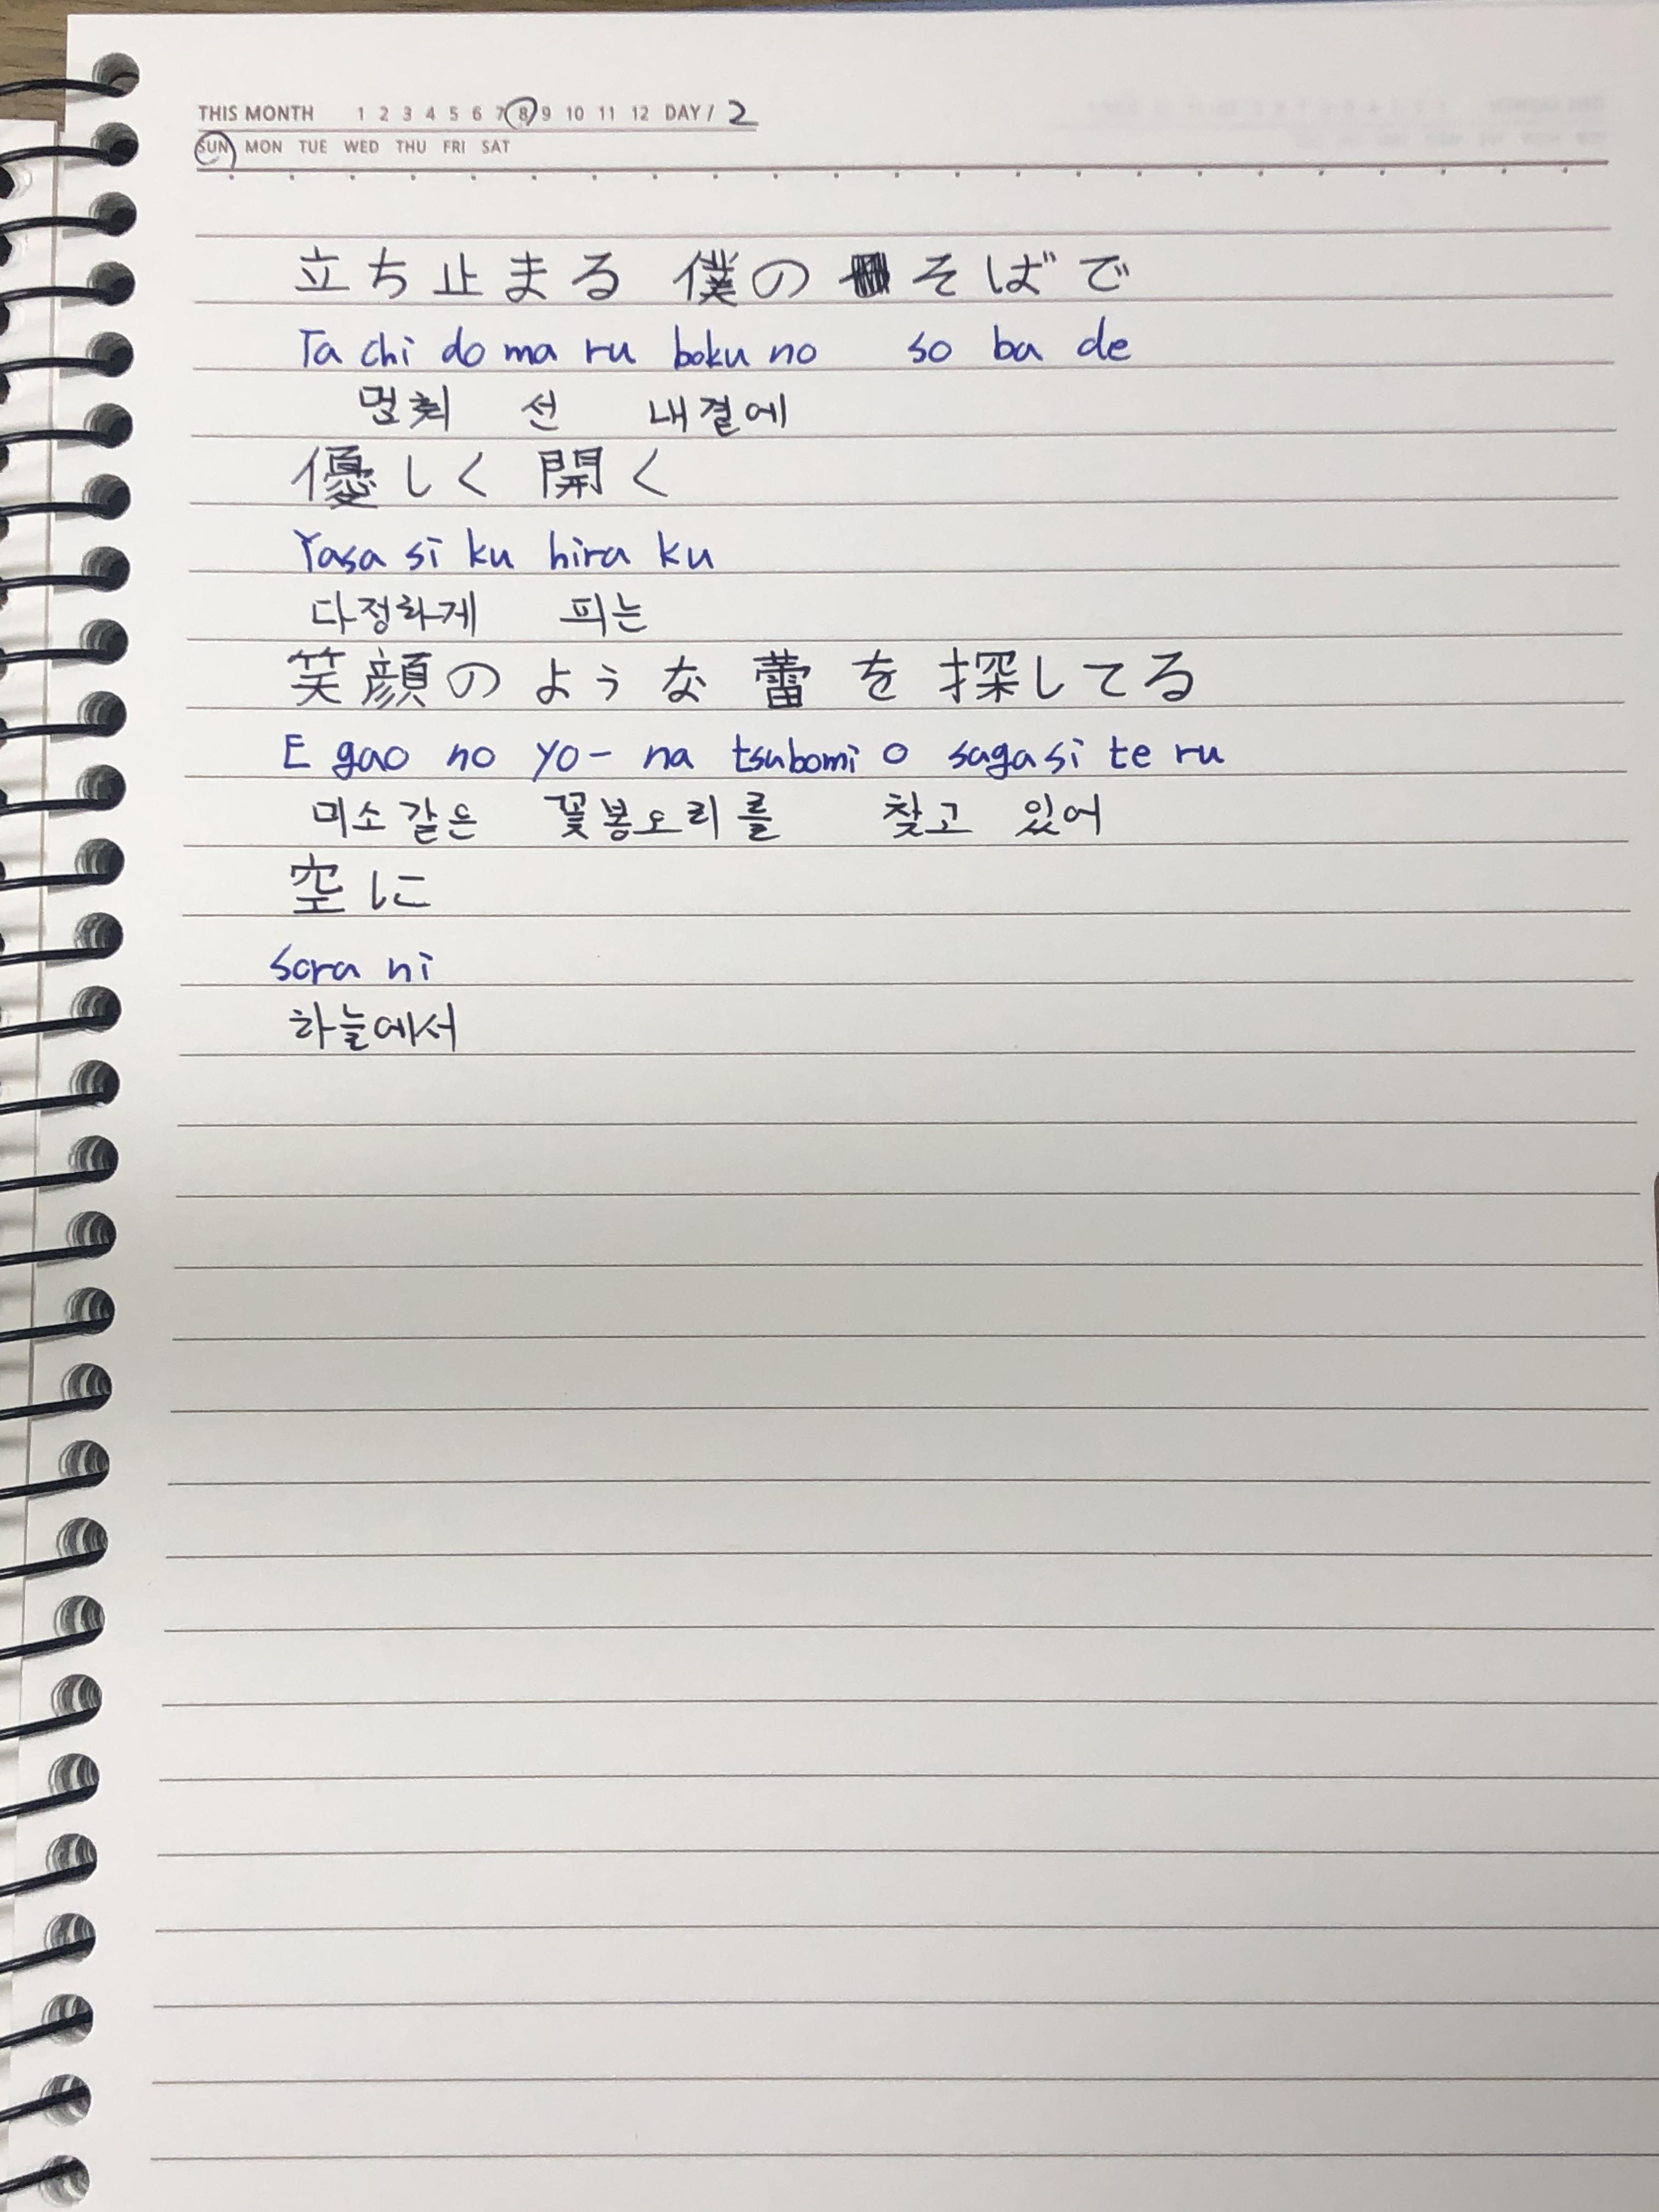 THIS MONTH 1 2 3 4 5 6 7 8 9 10 11 12 DAY / 2
SUN MON TUE WED THU FRI SAT
立ち止まる 僕の そばで
Ta chi do ma ru boku no so ba de
멈춰 선 내곁에
優しく 開く
Yasa si ku hira ku
다정하게 피는
笑顔の ような 蕾 を 探してる
E gao no yo- na tsubomi o sagasi te ru
미소같은 꽃봉오리를 찾고 있어
空に
sora ni
하늘에서